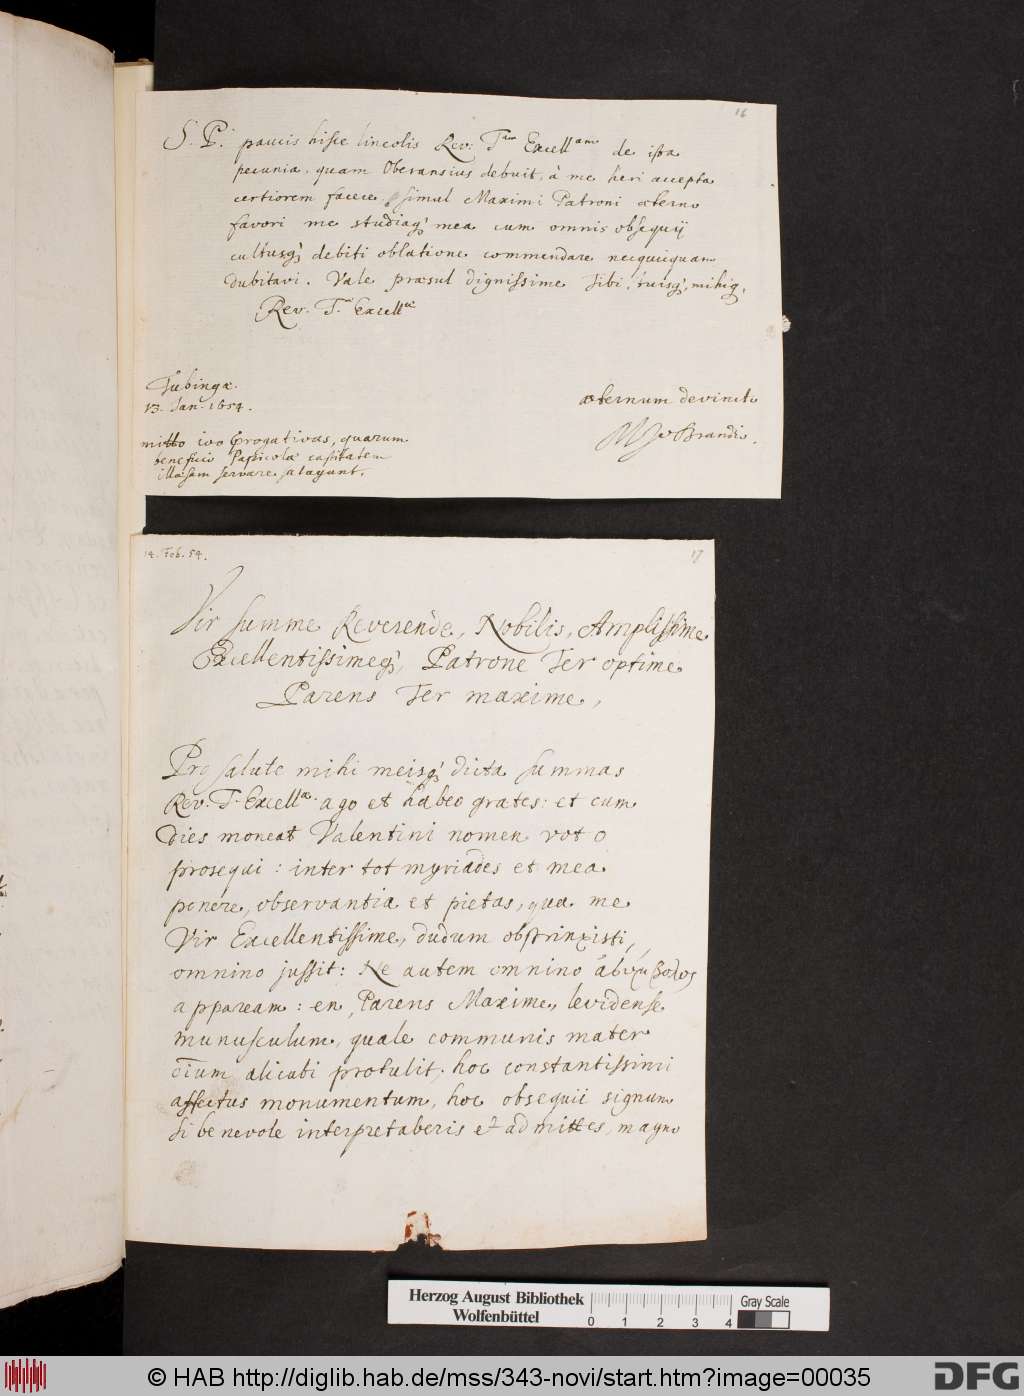 16
S. P. paucis hisce lineolis Rev: Tam Excellam de ista
pecunia, quam Oberansius debuit, à me heri accepta
certiorem facere, simul Maximi Patroni æterno
favori me studiaq; mea cum omnis obsequij
cultusq; debiti oblatione commendare necquicquam
dubitavi. Vale præsul dignissime tibi, tuisq;, mihiq.
Rev. T. Excellæ
Tubingæ
13. Jan. 1654.
æternum devinct
Brandis.
mitto prerogativas, quarum
beneficio Papicolæ castitatem
illæsam servare satagunt.
14. Feb. 54.
17
Vir summe Reverende, Nobilis, Amplissime
Excellentissimeq;, Patrone Ter optime
Parens Ter maxime,
Pro salute mihi meisq; dicta summas
Rev. T. Excellæ ago et habeo grates: et cum
dies moneat Valentini nomen voto
prosequi: inter tot myriades et mea
ponere, observantia et pietas, qua me
Vir Excellentissime, dudum obstrinxisti,
omnino jussit: Ne autem omnino
appaream: en, Parens Maxime, levidense
munusculum, quale communis mater
alicubi protulit, hoc constantissimi
affectus monumentum, hoc obsequii signum
si benevole interpretaberis et admittes, magno
Herzog August Bibliothek
Wolfenbüttel
0 1 2 3 4
Gray Scale
© HAB http://diglib.hab.de/mss/343-novi/start.htm?image=00035
DFG